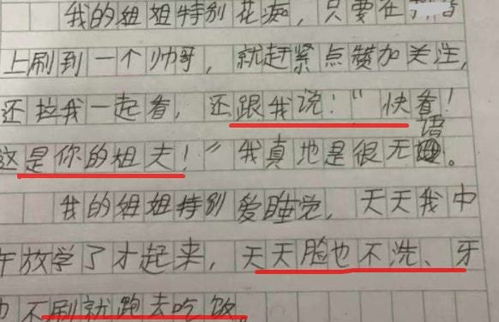 我的姐姐特别花痴,只要在抖音
上刷到一个帅哥,就赶紧点赞加关注,
还拉我一起看,还跟我说:"快看!
这是你的姐夫!"我真地是很无语。
我的姐姐特别爱睡觉,天天我中
午放学了才起来,天天脸也不洗、牙
也不刷就跑去吃饭。